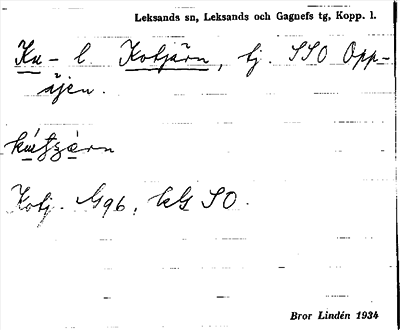 Leksands sn, Leksands och Gagnefs tg, Kopp. l.
Ku- l. Kotjärn, tj. SSO Opp-
äjen.
Kotj. Gg6, bl SO.
Bror Lindén 1934